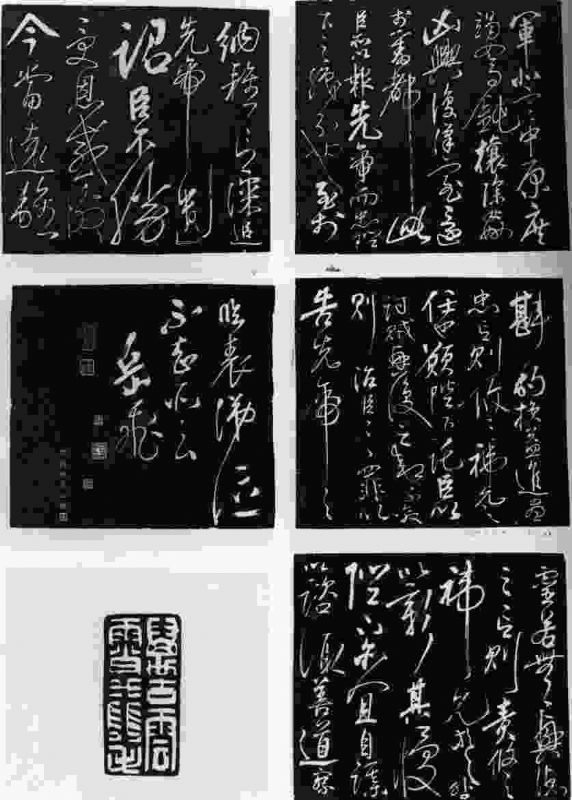 軍北定中原庶
竭駑鈍攘除姦
凶興復漢室還
於舊都此
臣所以報先帝而忠陛
下之職分也至於
斟酌損益進盡
忠言則攸之禕允之
任也願陛下託臣以
討賊興復之效不效
則治臣之罪以
告先帝之
靈若無興德
之言則責攸之
禕允等
以彰其慢
陛下亦宜自謀
以諮諏善道察
納雅言深追
先帝遺
詔臣不勝
受恩感激
今當遠離
臨表涕泣
不知所云
岳飛